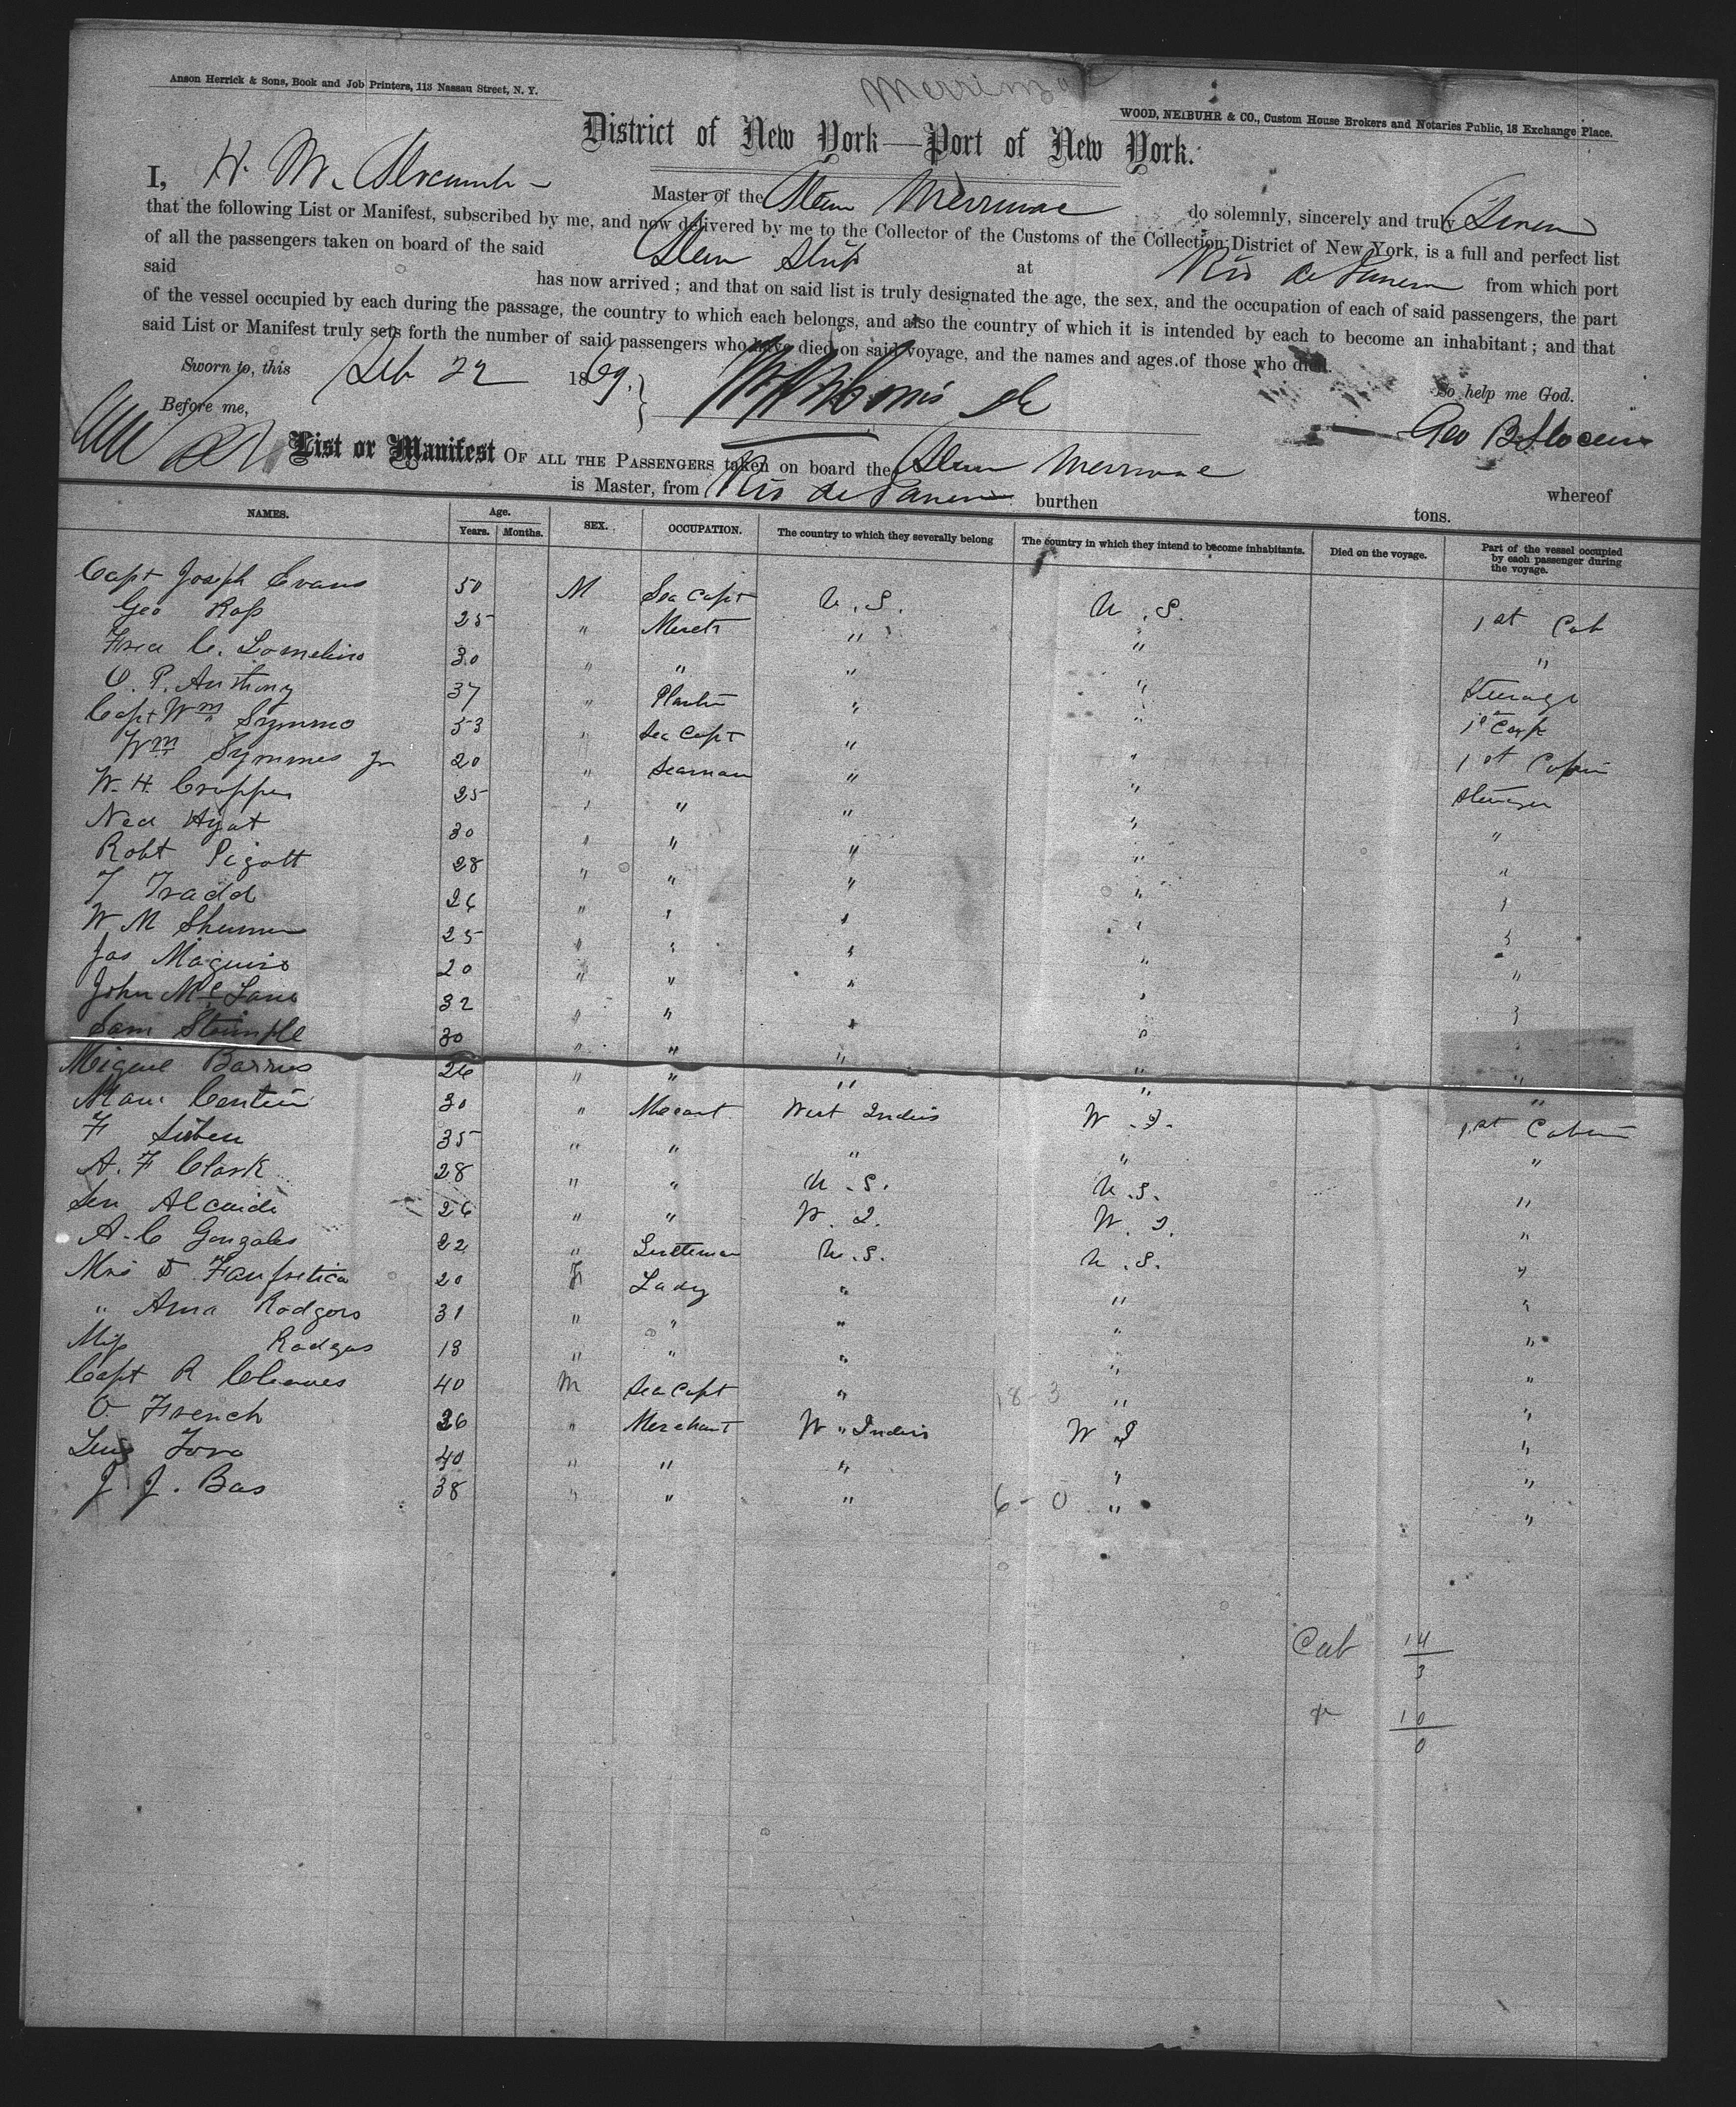 Merrimac
Anson Herrick & Sons, Book and Job Printers, 113 Nassau Street, N. Y.
WOOD, NEIBUHR & CO., Custom House Brokers and Notaries Public, 18 Exchange Place.
District of New York—Port of New York.
I, H. M. Master of the Steam Merrimac do solemnly, sincerely and truly Swear
that the following List or Manifest, subscribed by me, and now delivered by me to the Collector of the Customs of the Collection District of New York, is a full and perfect list
of all the passengers taken on board of the said Steam Ship at Rio de Janeiro from which port
said has now arrived; and that on said list is truly designated the age, the sex, and the occupation of each of said passengers, the part
of the vessel occupied by each during the passage, the country to which each belongs, and also the country of which it is intended by each to become an inhabitant; and that
said List or Manifest truly sets forth the number of said passengers who have died on said voyage, and the names and ages of those who died.
Sworn to, this Feb 22 1869. So help me God.
Before me, Geo B Slocum
List or Manifest OF ALL THE PASSENGERS taken on board the Steam Merrimac whereof
is Master, from Rio de Janeiro burthen tons.
NAMES. Age. Years. Months. SEX. OCCUPATION. The country to which they severally belong The country in which they intend to become inhabitants. Died on the voyage. Part of the vessel occupied by each passenger during the voyage.
Capt Joseph Evans 50 M Sea Capt U. S. U. S. 1st Cab
Geo Ross 25 " Mercht " " "
Fred C. 30 " " " " Steerage
O. P. Anthony 37 " Planter " " 1st Cab
Capt Wm Symmes 53 " Sea Capt " " 1st Cabin
Wm Symmes Jr 20 " Seaman " " Steerage
W. H. Cropper 25 " " " " "
Ned Hyat 30 " " " " "
Robt Pigott 28 " " " " "
T Tradd 26 " " " " "
W M 25 " " " " "
Jas Maguire 20 " " " " "
John McLane 32 " " " " "
Sam 30 " " " " "
Miguel Barrios 26 " " " " "
30 " Mercant West Indies W. I. 1st Cabin
F 35 " " " " "
A. F Clark 28 " " U. S. U. S. "
26 " " W. I. W. I. "
A. C Gonzales 22 " U. S. U. S. "
Mrs 20 F Lady " " "
" Anna Rodgers 31 " " " " "
Miss Rodgers 13 " " " " "
Capt R 40 M Sea Capt " 18-3 " "
O. French 36 " Merchant W. Indies W I "
40 " " " " "
J. J. Bas 38 " " " 6-0 " "
Cab 14
3
10
0